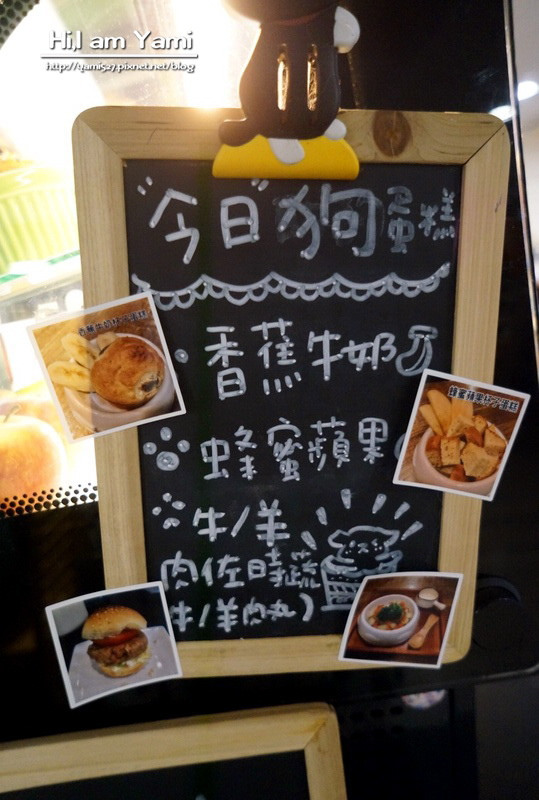 Hi,I am Yami
http://yami527.pixnet.net/blog
"今日"狗蛋糕
香蕉牛奶杯子蛋糕
香蕉牛奶
蜂蜜蘋果杯子蛋糕
蜂蜜蘋果
牛/羊
肉佐時蔬
牛/羊肉丸)